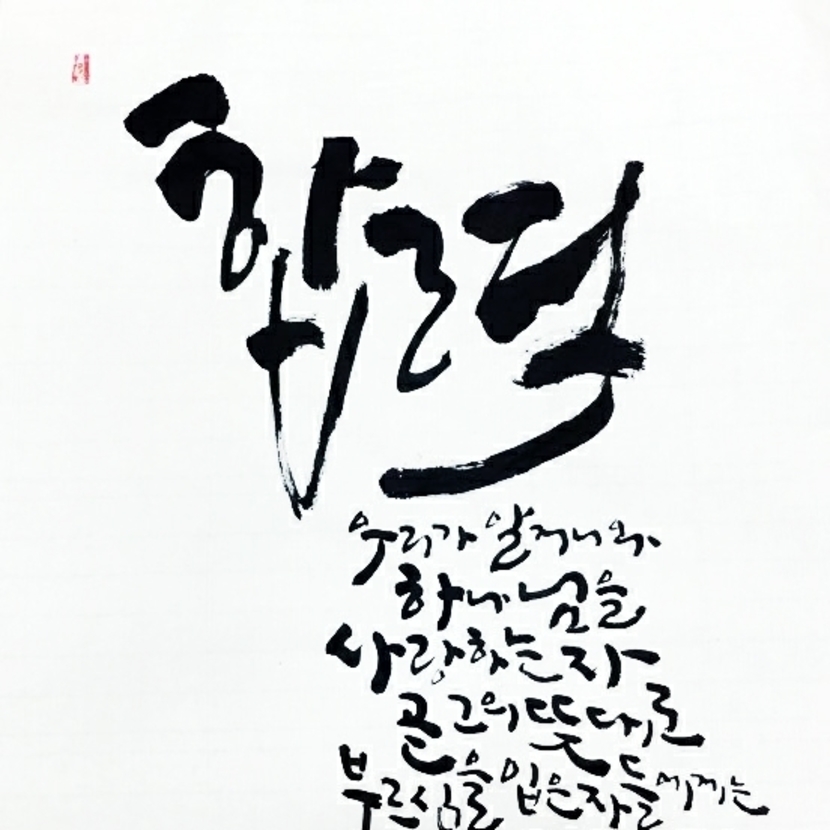 합력
우리가 알거니와
하나님을
사랑하는 자
곧 그의 뜻대로
부르심을 입은 자들에게는